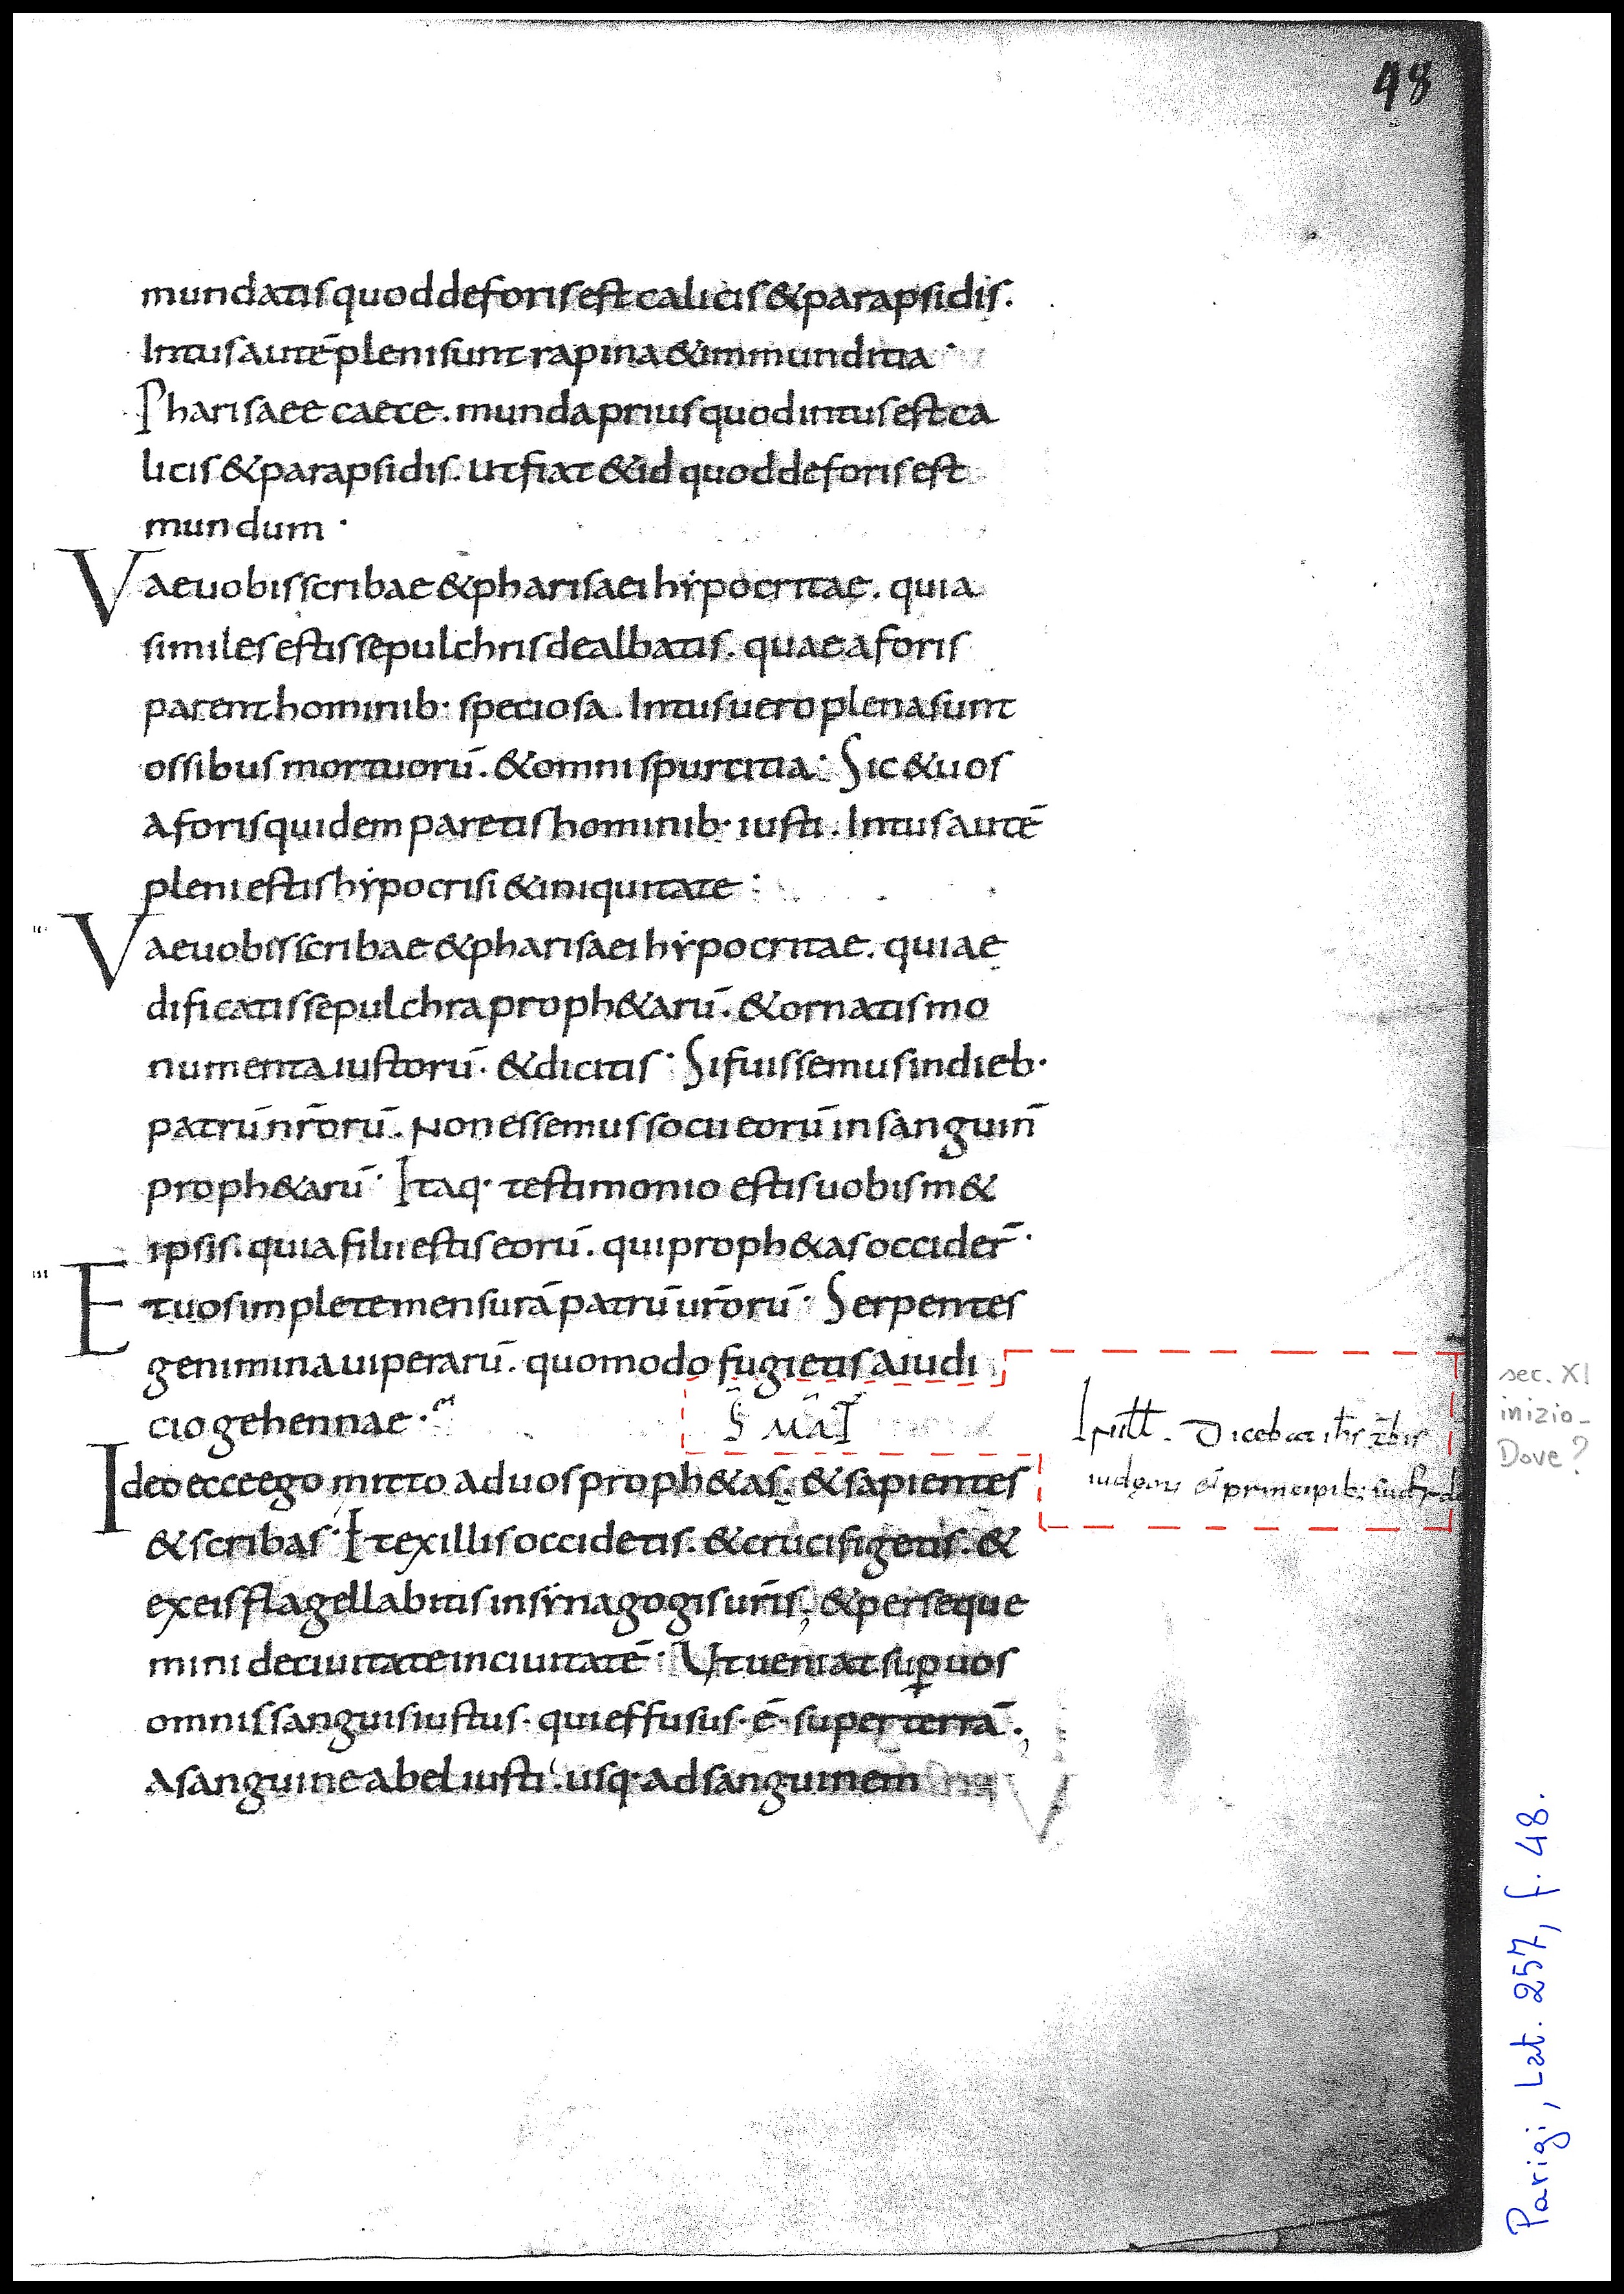 48
mundatis quod deforis est calicis & parapsidis.
Intus autē pleni sunt rapina & immunditia·
Pharisaee caece. munda prius quod intus est ca
licis & parapsidis. ut fiat & id quod deforis est
mundum·
Vae uobis scribae & pharisaei hypocritae. quia
similes estis sepulchris dealbatis. quae a foris
parent hominib· speciosa. Intus uero plena sunt
ossibus mortuorū. & omni spurcitia· Sic & uos
a foris quidem paretis hominib· iusti. Intus autē
pleni estis hypocrisi & iniquitate·
Vae uobis scribae & pharisaei hypocritae. quiae
dificatis sepulchra proph&arū. & ornatis mo
numenta iustorū· & dicitis· Si fuissemus in dieb·
patrū nr̄orū. Non essemus socii eorū in sanguin̄
proph&arū· Itaq· testimonio estis uobism&
ipsis. quia filii estis eorū. qui proph&as occider̄·
Et uos implete mensurā patrū ur̄orū· Serpentes
genimina uiperarū. quomodo fugietis a iudi
cio gehennae·
Ideo ecce ego mitto ad uos proph&as. & sapientes
& scribas· Et ex illis occidetis. & crucifigetis. &
ex eis flagellabitis in synagogis ur̄is, & perseque
mini de ciuitate in ciuitatē· Ut ueniat sup uos
omnis sanguis iustus· qui effusus· ē· super terrā.,
A sanguine abel iusti. usq· ad sanguinem
S MAT
In illt. Dicebat ihs
iudęorum & principib;
sec. XI
inizio_
Dove?
Parigi, Lat. 257, f. 48.